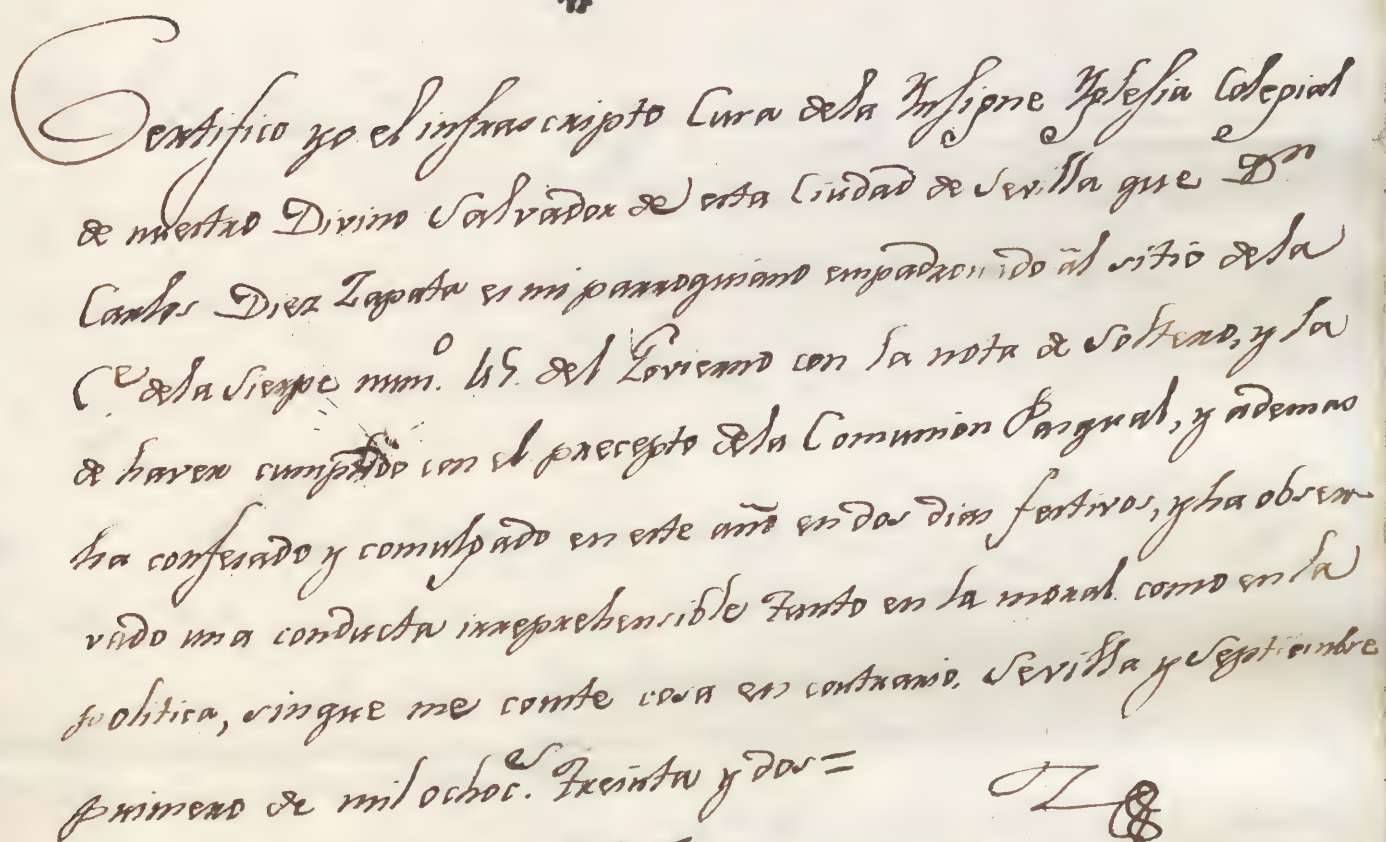 Certifico yo el infrascripto Cura dela Insigne Yglesia Colegial
de nuestro Divino Salvador de esta Ciudad de Sevilla que Dn
Carlos Diez Zapata es mi parroquiano empadronado al sitio dela
Ce dela Sierpe numo. 45. del Govierno con la nota de Soltero, y la
de haver cumplido con el precepto dela Comunion Pasqual, y ademas
ha confesado y comulgado en este año en dos dias festivos, y ha obser-
vado una conducta irreprehensible tanto en la moral como en la
politica, sin que me conste cosa en contrario. Sevilla y Septiembre
primero de mil ochoc.es treinta y dos=